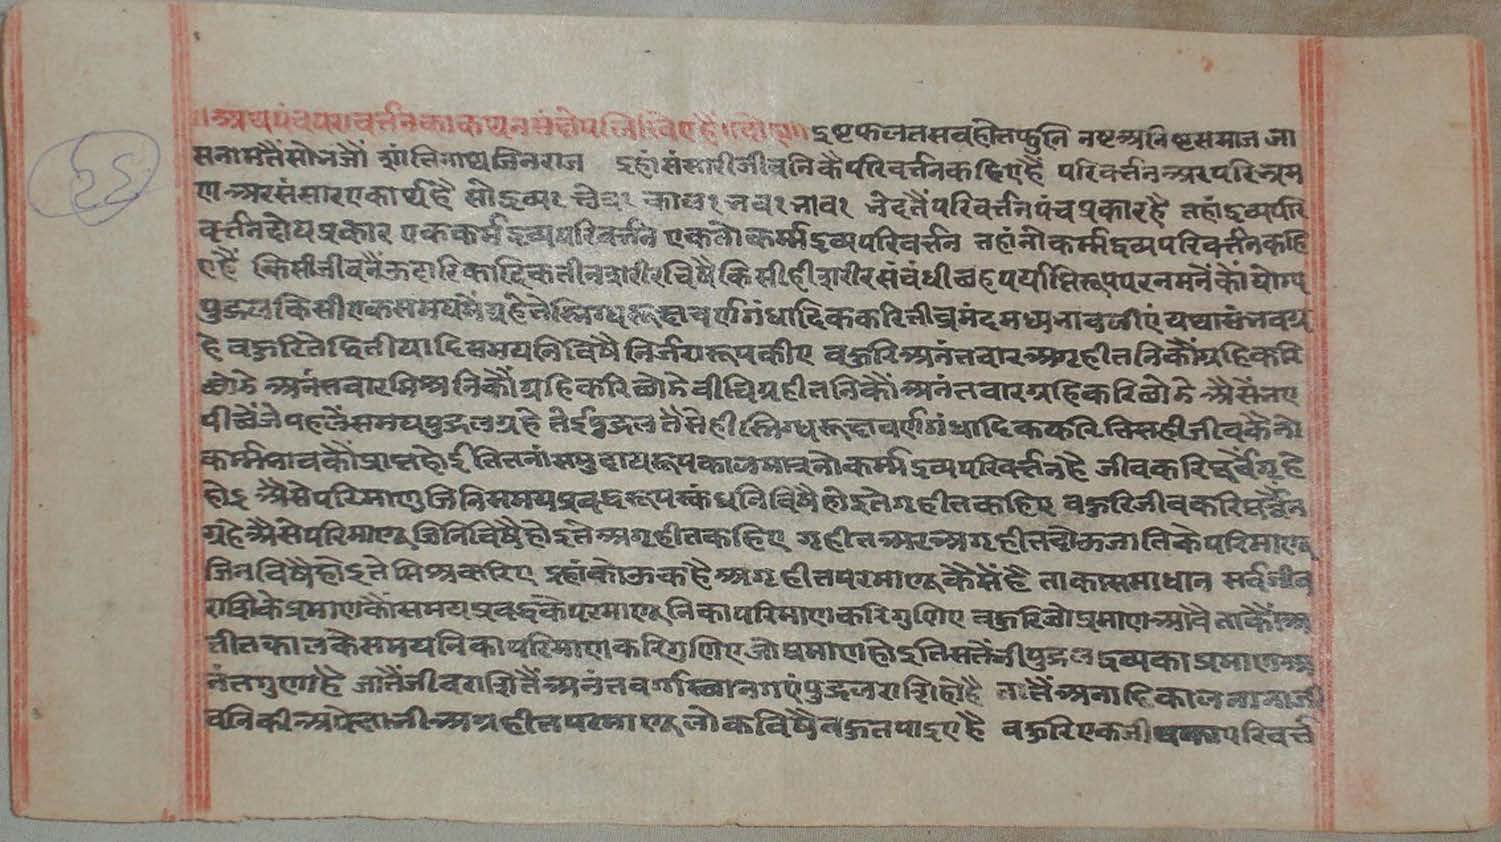 ॥अथ पंच परावर्त्तन का कथन संछेप लिखिए है॥ दोहा॥ इष्ट फलत सब होत फुनि नष्ट अनिष्ट समाज जा
स नामतैं सो भजौं शांतिनाथ जिनराज इहां संसारी जीवनि कै परिवर्त्तन कहिए हैं परिवर्त्तन अर परिभ्रम
ण अर संसार एकार्थ है सो द्रव्य१ क्षेत्र१ काल१ भव१ भाव१ भेदतैं परिवर्त्तन पंच प्रकार है तहां द्रव्य परि
वर्त्तन दोय प्रकार एक कर्म द्रव्य परिवर्त्तन एक नोकर्म्म द्रव्य परिवर्त्तन तहां नोकर्म्म द्रव्य परिवर्त्तन कहि
ए हैं किसी जीवनैं ऊदारिकादिक तीन शरीर विषै किसी ही शरीर संबंधी छह पर्याप्ति रूप परनमनें कों योग्य
पुद्गल किसी एक समयमैं ग्रहे ते स्निग्ध रूक्ष वर्ण गंधादिक करि तीव्र मंद मध्य भाव लीएं यथा संभव ग्र
हे बहुरि ते द्वितीयादि समयनि विषै निर्जरा रूप कीए बहुरि अनंत वार अगृहीतनिकौं ग्रहि करि
छोडे अनंत वार मिश्रनिकौं ग्रहि करि छोडे वीचि ग्रहीतनिकौं अनंत वार ग्रहि करि छोडे अैसें भए
पीछें जे पहलैं समय पुद्गल ग्रहे तेई पुद्गल तैसे ही स्निग्ध रूक्ष वर्ण गंधादिक करि तिसही जीवकै नो
कर्म्म भावकौं प्राप्त होई तितनां समुदाय रूप काल मात्र नोकर्म्म द्रव्य परिवर्त्तन है जीव करि पूर्वै गृहे
होइ अैसे परिमाणु जिनि समय प्रबद्ध रूप स्कंधनि विषै होइ ते गृहीत कहिए बहुरि जीव करि पूर्वैं न
ग्रहे अैसे परिमाणू जिनि विषै होइ ते अगृहीत कहिए गृहीत अर अगृहीत दोऊ जाति के परिमाणू
जिन विषै होइ ते मिश्र कहिए इहां कोऊ कहै अगृहीत परमाणू कैसें है ताका समाधान सर्व जीव
राशि के प्रमाणकौं समय प्रबद्धकै परमाणूनिका परिमाण करि गुणिए बहुरि जो प्रमाण आवै ताकौं अ
तीत काल के समयनि का परिमाण करि गुणिए जो प्रमाण होइ तिसतैं भी पुद्गल द्रव्य का प्रमाण अ
नंत गुणा है जातैं जीव राशितैं अनंत वर्गस्थान गएं पुद्गल राशि हो है तातैं अनादि काल नाना जी
वनि की अपेक्षा भी अग्रहीत परमाणू लोक विषै बहुत पाइए है बहुरि एक जीव का परिवर्त्त